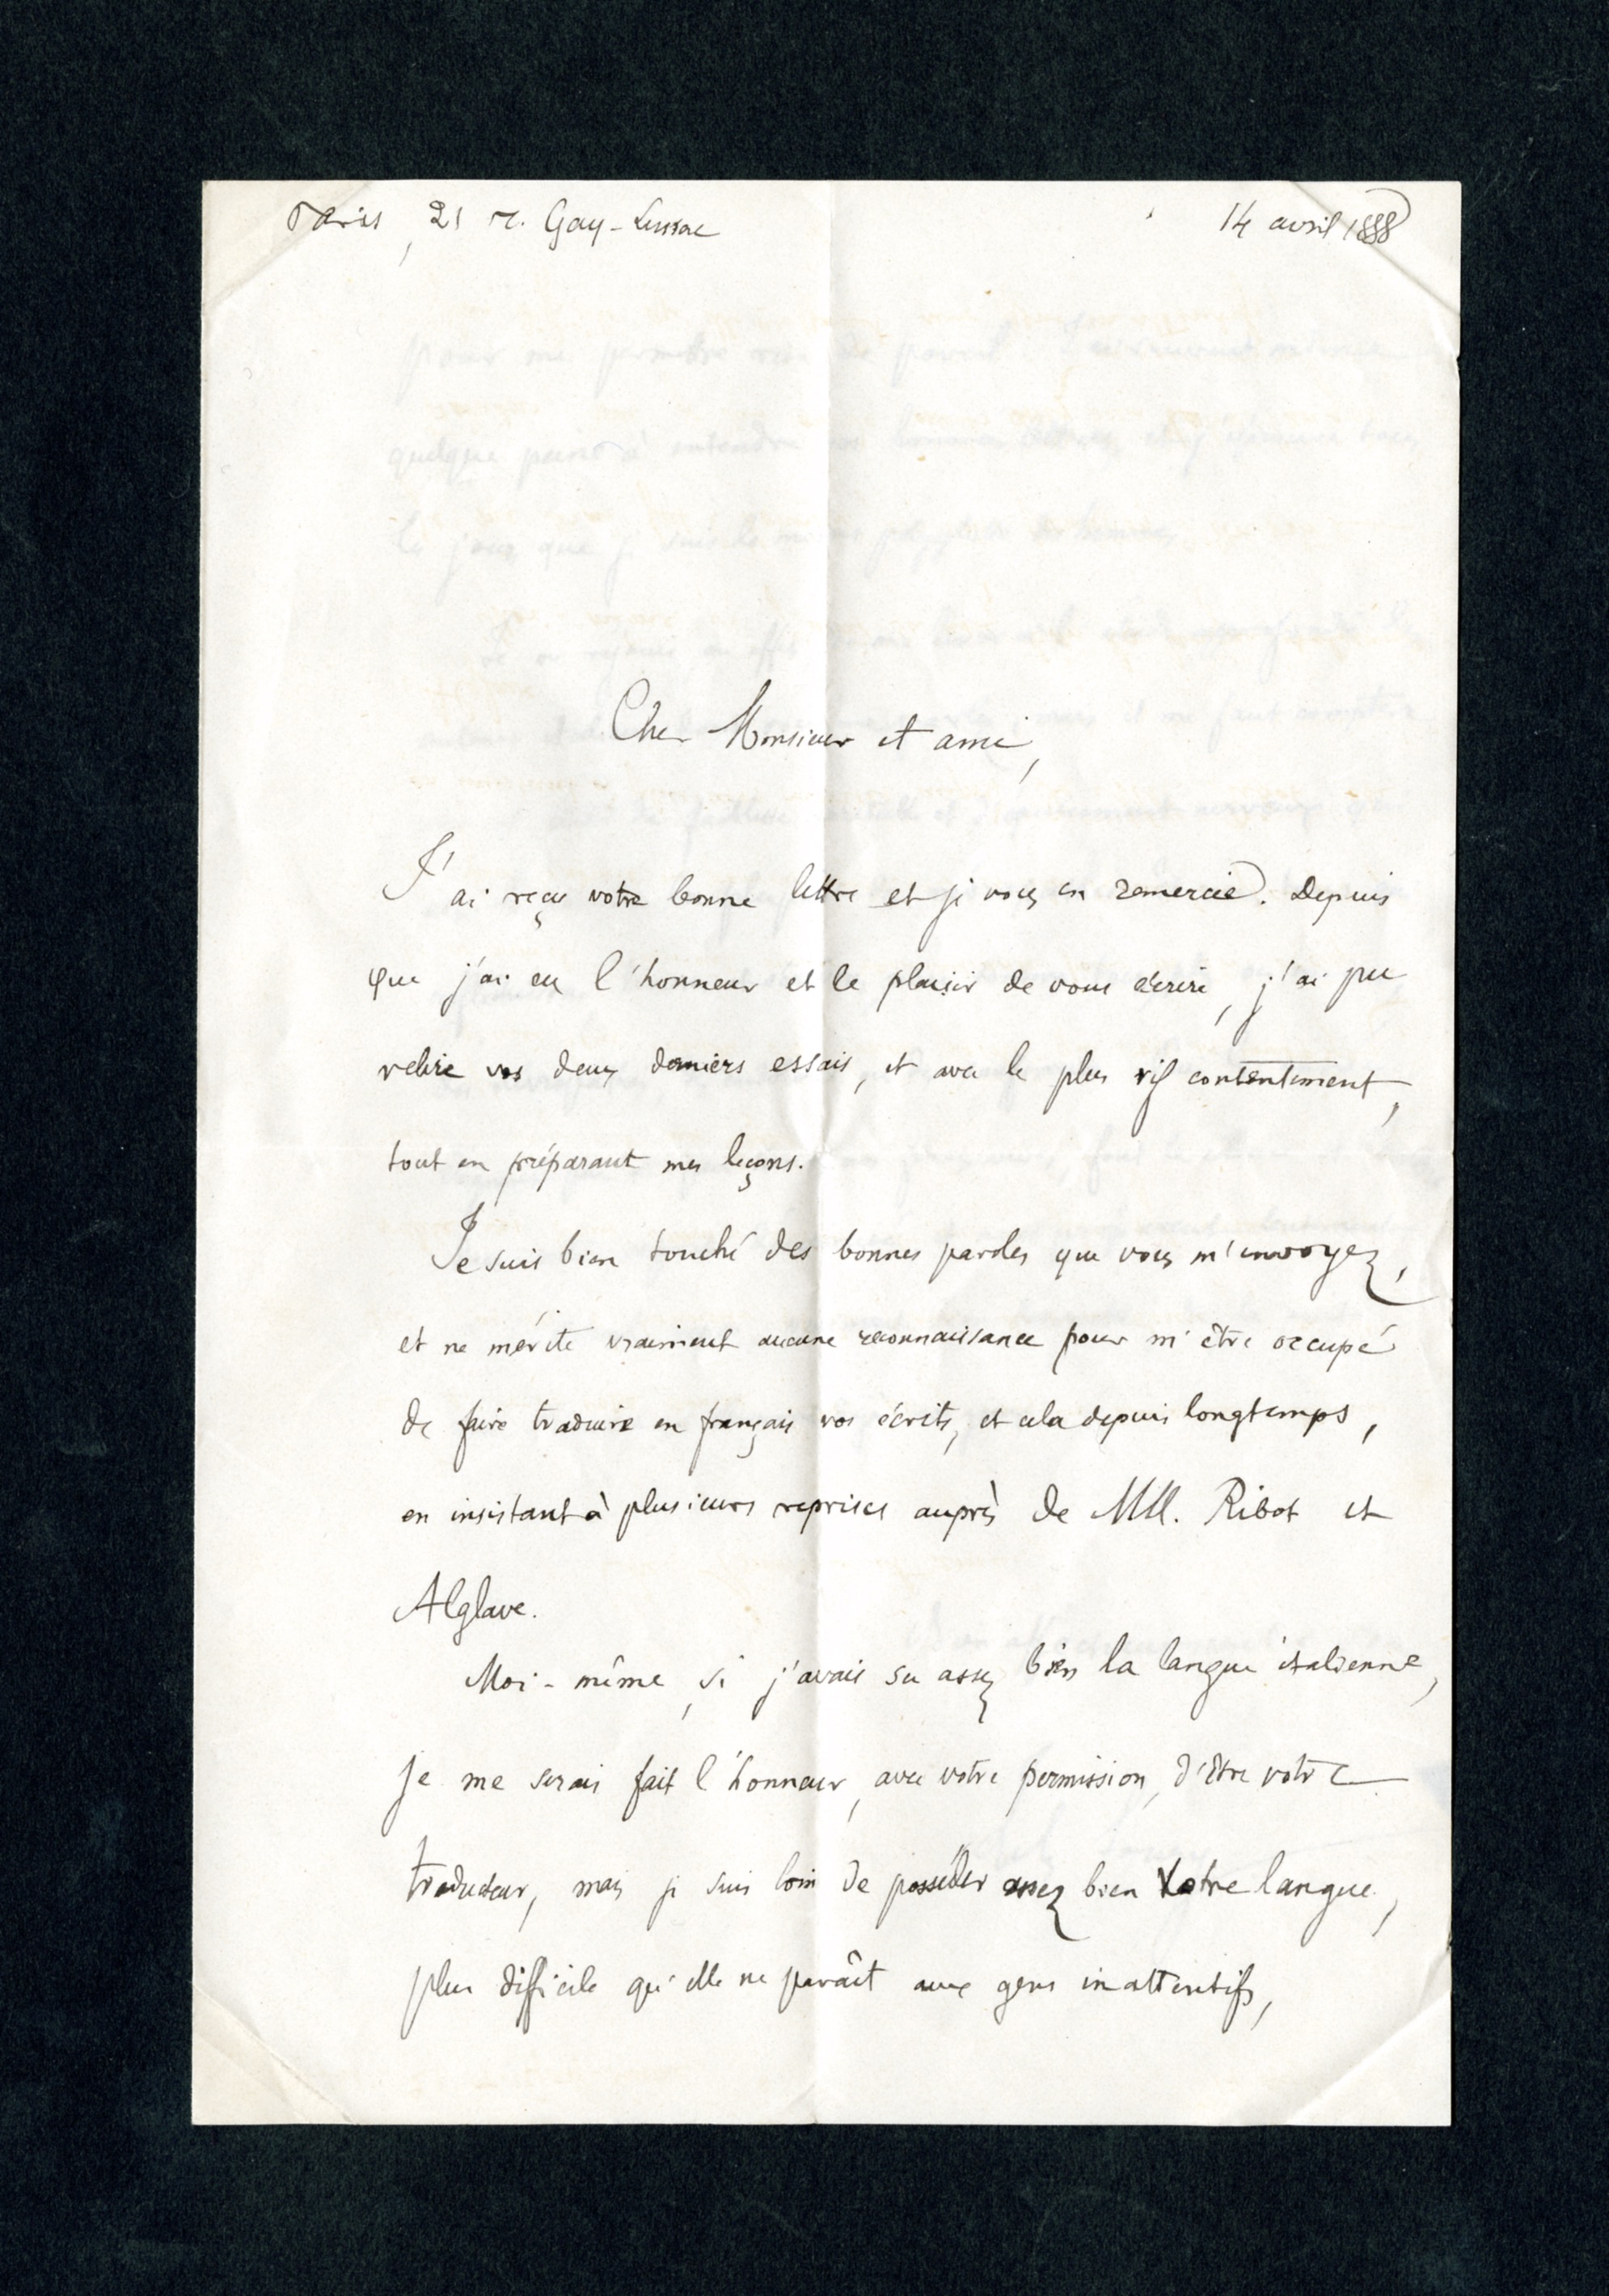 Paris, 21 r. Gay-Lussac 14 avril 1888
Cher Monsieur et ami,
J'ai reçu votre bonne lettre et je vous en remercie. Depuis
que j'ai eu l'honneur et le plaisir de vous écrire, j'ai pu
relire vos deux derniers essais, et avec le plus vif contentement,
tout en préparant mes leçons.
Je suis bien touché des bonnes paroles que vous m'envoyez,
et ne mérite vraiment aucune reconnaissance pour m'être occupé
de faire traduire en français vos écrits, et cela depuis longtemps,
en insistant à plusieurs reprises auprès de MM. Ribot et
Alglave.
Moi-même, si j'avais su assez bien la langue italienne,
je me serais fait l'honneur, avec votre permission, d'être votre
traducteur, mais je suis loin de posséder assez bien votre langue,
plus difficile qu'elle ne paraît aux gens inattentifs,